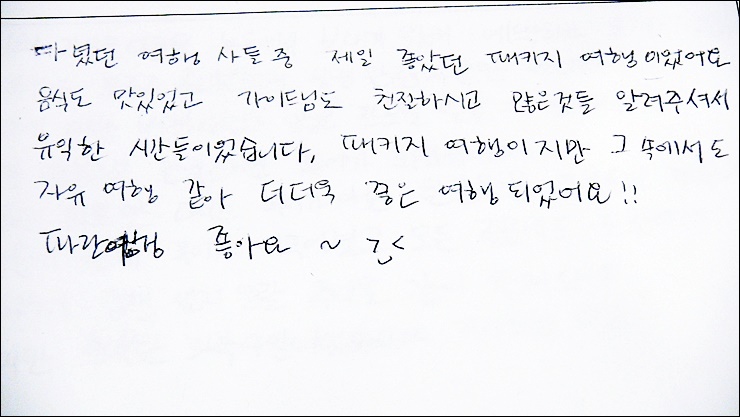 다녔던 여행 사들 중 제일 좋았던 패키지 여행이었어요
음식도 맛있었고 가이드님도 친절하시고 많은것들 알려주셔서
유익한 시간들이었습니다. 패키지 여행이지만 그 속에서도
자유 여행 같아 더더욱 좋은 여행 되었어요!!
파란여행 좋아요 ~